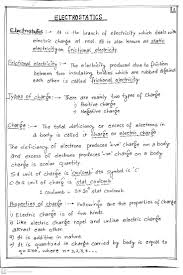 ELECTROSTATICS
Electrostatics :- It is the branch of electricity which deals with
electric charge at rest. It is also known as static
electricity or frictional electricity
Frictional electricity :- The electricity produced due to friction
between two insulating bodies which are rubbed against
each other is called frictional electricity.
Types of charge :- There are mainly two types of charge
Positive charge
Negative charge
Charge :- The total deficiency or excess of electrons in
a body is called charge or electric charge.
The deficiency of electrons produces +ve charge on a body
and excess of electrons produces -ve charge on a body
charge is scalar quantity
S.I unit of charge is coulomb its symbol is 'C'
C.G.S unit of charge is stat coulomb
1 coulomb = 3×10⁹ stat coulomb
Properties of charge :- Following are the properties of charge
i) Electric charge is of two kinds
ii) Like electric charges repel and unlike electric charge
attract each other
iii) It is additive in nature
iv) It is quantized ie charge carried by body is equal to
q = ne, where n = 1,2,3,...